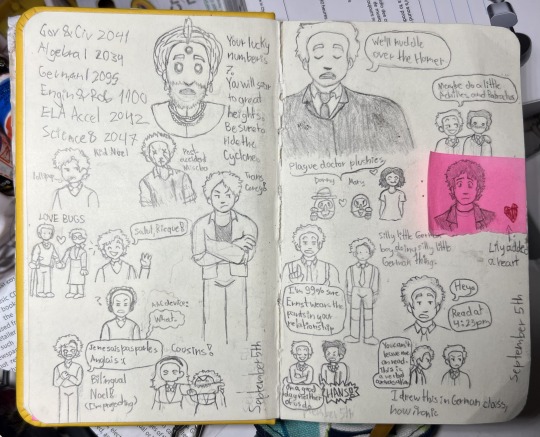 Gov & Civ 2041
Algebra I 2034
German I 2095
Engin & Rob 1100
ELA Accel 2042
Science 8 2047
Your lucky
number is
7.
You will soar
to great
heights.
Be sure to
ride the
Cyclone.
lollipop
Kid Noel
Post-
accident
Mischa
Trans
Georg?
LOVE BUGS
Salut, B
?
What.
Je ne sais pas parler
Anglais :(
Bilingual
Noel!!
(I'm projecting)
Cousins!
September 5th
We'll huddle
over the Homer
Maybe do a little
Achilles and Patroclus
Plague doctor plushies
Danny
Mary
Lily added
a heart
Silly little German
boy, doing silly little
German things.
I'm 99% sure
Ernst wears the
pants in your
relationship
Heyo
Read at
4:23pm
You can't
leave me
on read.
This is
a verbal
conversation
HANSI
September 5th
I drew this in German class,
how ironic
September 5th